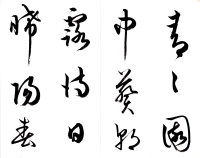 青〻園
中葵朝
露待日
晞陽春